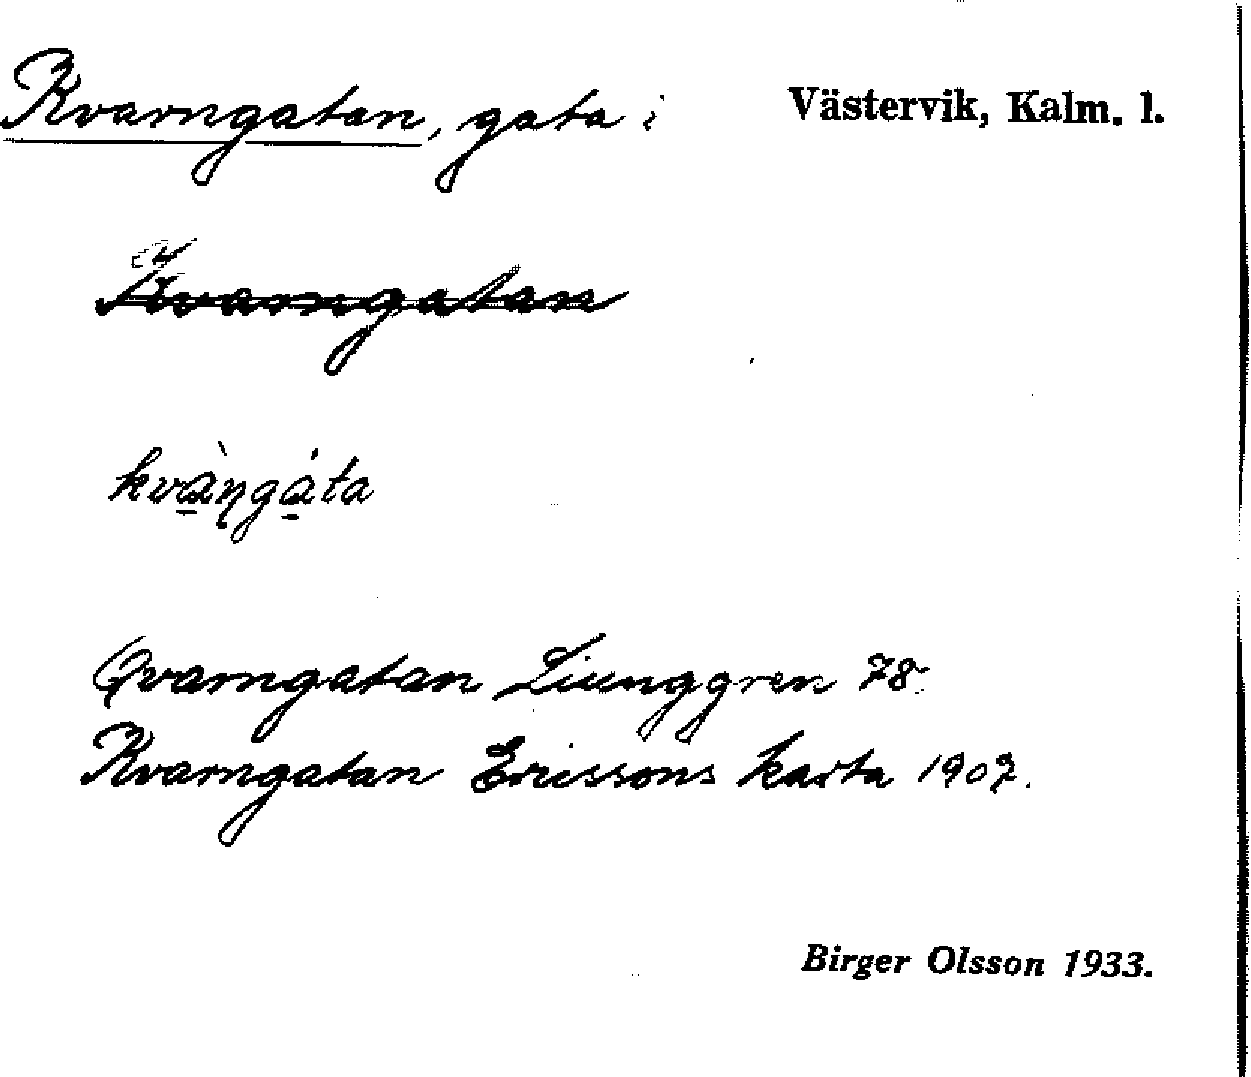 Kvarngatan, gata i Västervik, Kalm. l.
Kvarngatan
kvàŋgáta
Qvarngatan Liunggren 78.
Kvarngatan Ericssons karta 1907.
Birger Olsson 1933.